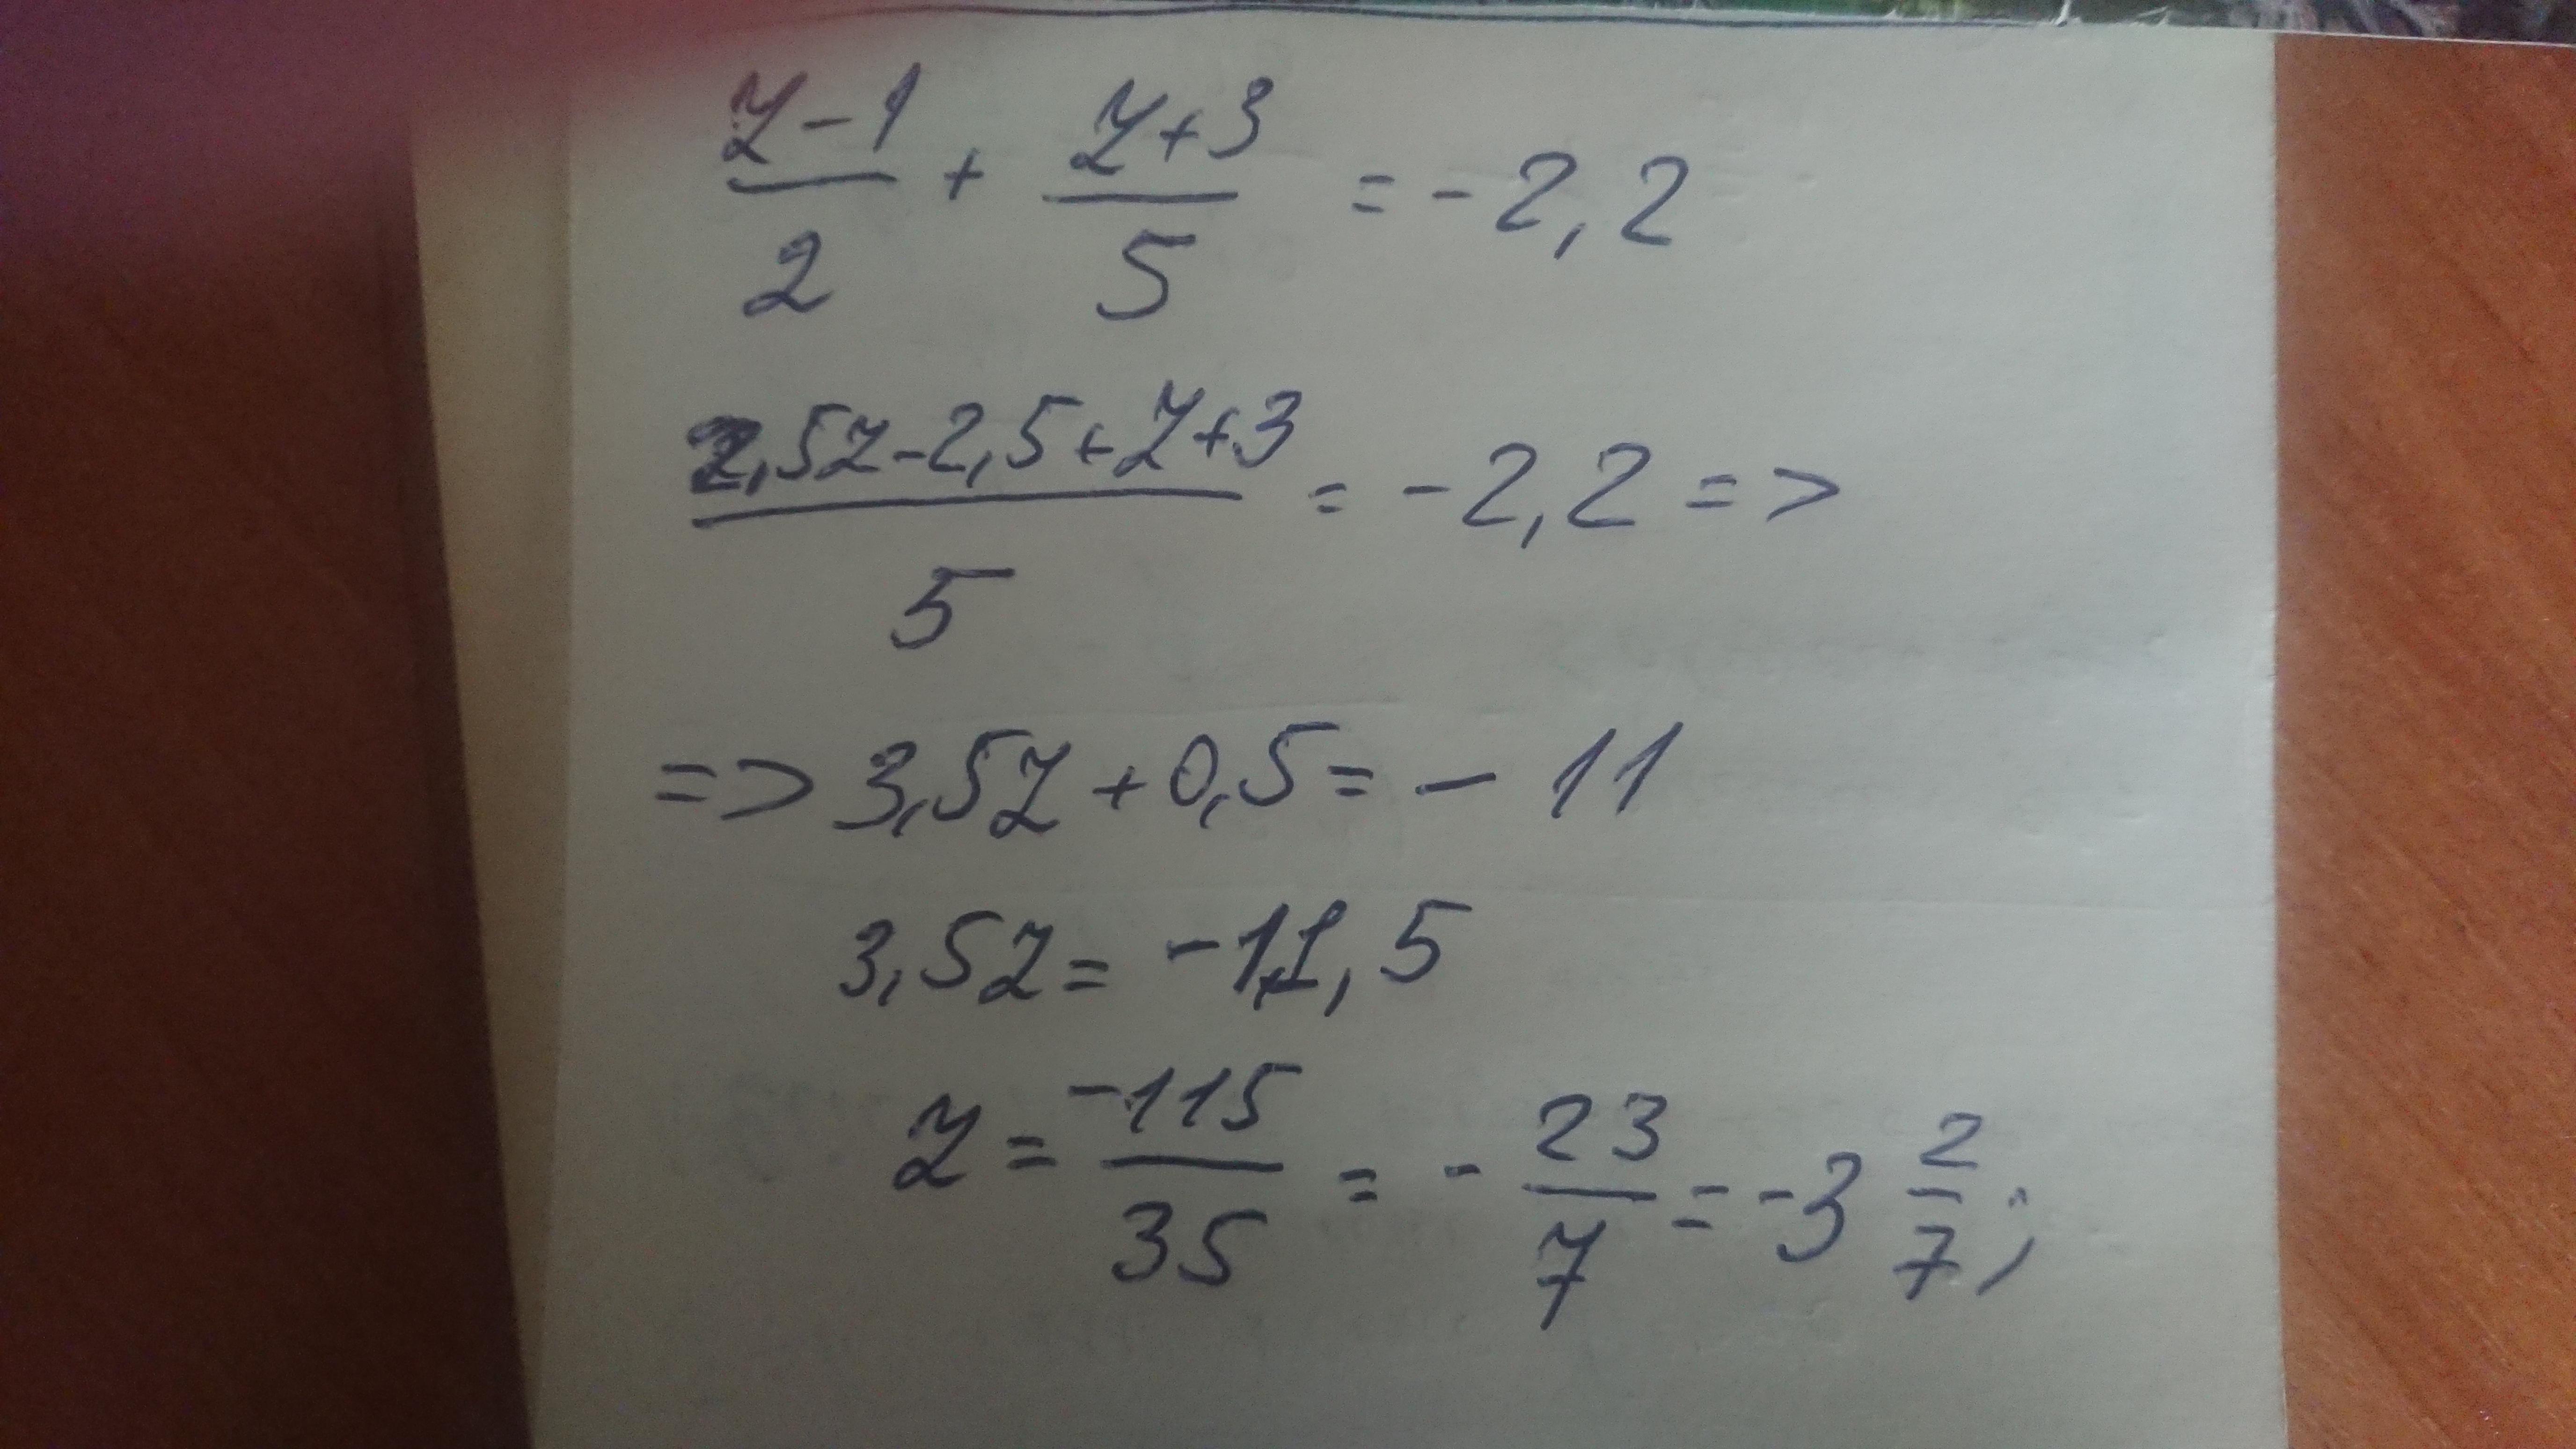 (z-1)/2 + (z+3)/5 = -2,2
(2,5z-2,5+z+3)/5 = -2,2 =>
=> 3,5z + 0,5 = - 11
3,5z = -11,5
z = -115/35 = - 23/7 = -3 2/7;